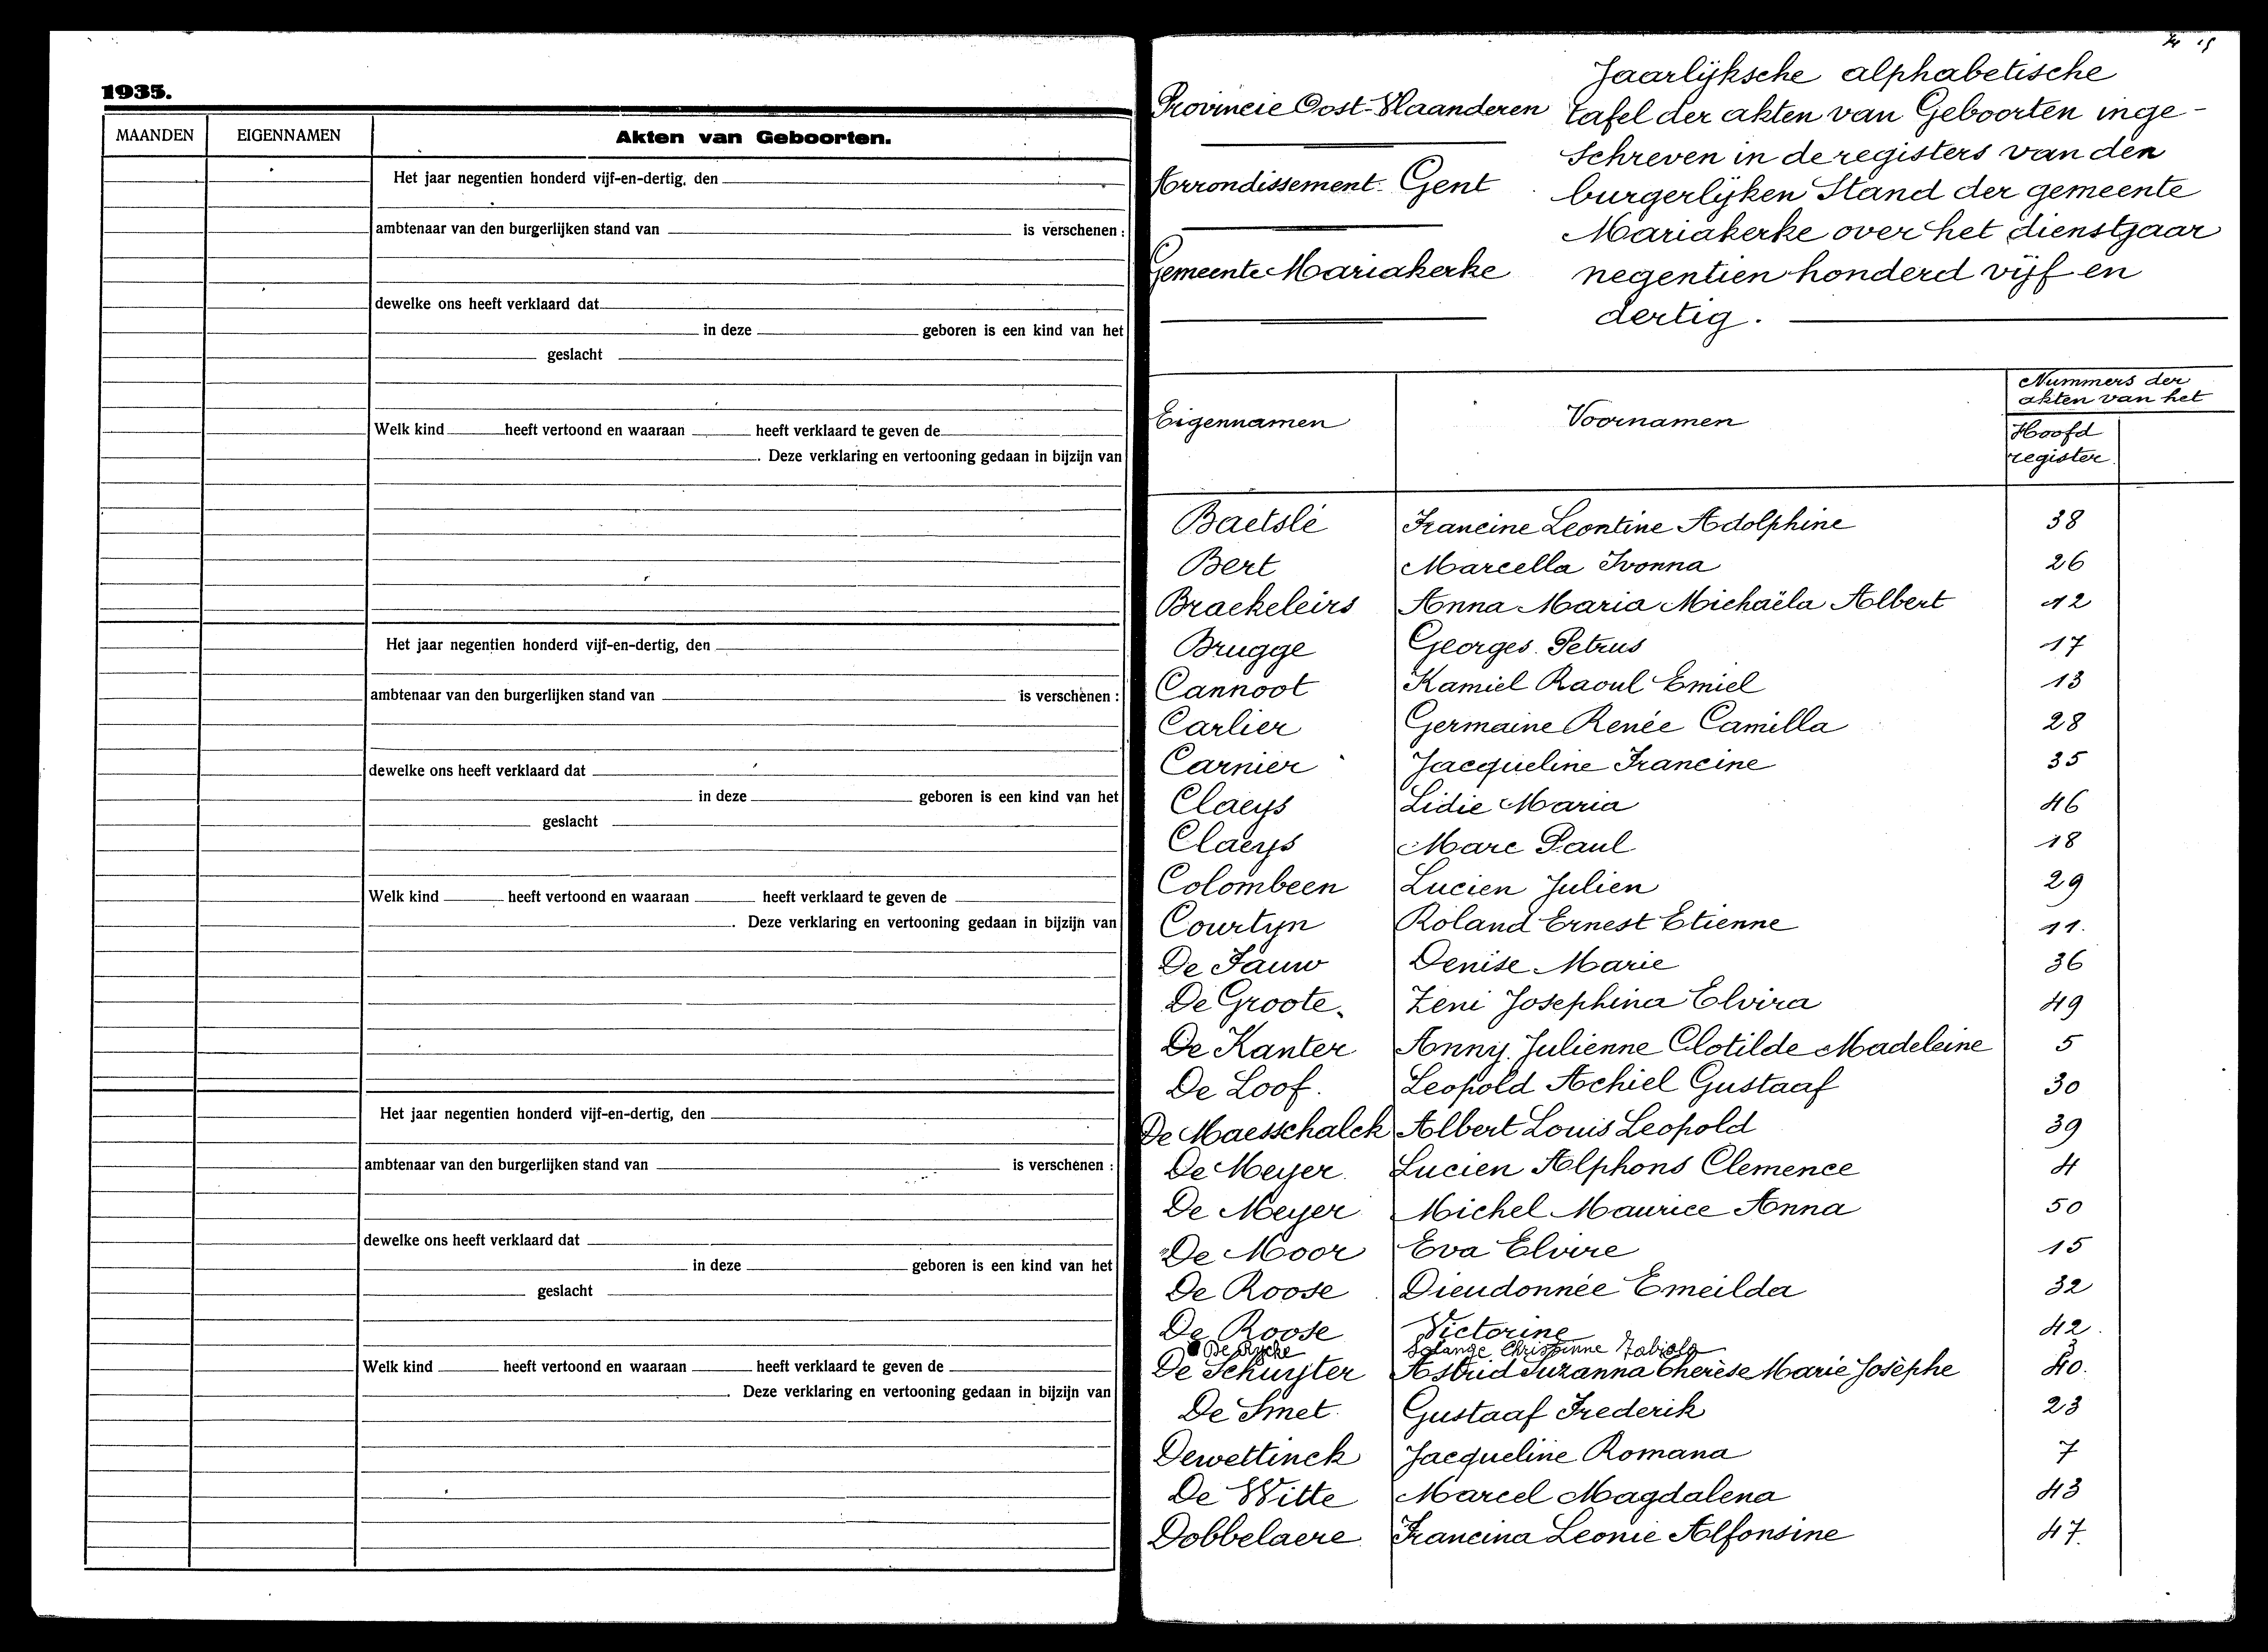 1935.
MAANDEN EIGENNAMEN Akten van Geboorten.
Het jaar negentien honderd vijf-en-dertig, den
ambtenaar van den burgerlijken stand van is verschenen :
dewelke ons heeft verklaard dat
in deze geboren is een kind van het
geslacht
Welk kind heeft vertoond en waaraan heeft verklaard te geven de
. Deze verklaring en vertooning gedaan in bijzijn van
Het jaar negentien honderd vijf-en-dertig, den
ambtenaar van den burgerlijken stand van is verschenen :
dewelke ons heeft verklaard dat
in deze geboren is een kind van het
geslacht
Welk kind heeft vertoond en waaraan heeft verklaard te geven de
. Deze verklaring en vertooning gedaan in bijzijn van
Het jaar negentien honderd vijf-en-dertig, den
ambtenaar van den burgerlijken stand van is verschenen :
dewelke ons heeft verklaard dat
in deze geboren is een kind van het
geslacht
Welk kind heeft vertoond en waaraan heeft verklaard te geven de
. Deze verklaring en vertooning gedaan in bijzijn van
Provincie Oost-Vlaanderen
Arrondissement Gent
Gemeente Mariakerke
Jaarlijksche alphabetische
tafel der akten van Geboorten inge-
schreven in de registers van den
burgerlijken Stand der gemeente
Mariakerke over het dienstjaar
negentien honderd vijf en
dertig.
Eigennamen Voornamen Nummers der
akten van het
Hoofd
register
Baetslé Francine Leontine Adolphine 38
Bert Marcella Ivonna 26
Braekeleirs Anna Maria Michaëla Albert 12
Brugge Georges Petrus 17
Cannoot Kamiel Raoul Emiel 13
Carlier Germaine Renée Camilla 28
Carnier Jacqueline Francine 35
Claeys Lidie Maria 46
Claeys Marc Paul 18
Colombeen Lucien Julien 29
Courtyn Roland Ernest Etienne 11.
De Fauw Denise Marie 36
De Groote Zeni Josephina Elvira 49
De Kanter Anny Julienne Clotilde Madeleine 5
De Loof. Leopold Achiel Gustaaf 30
De Maesschalck Albert Louis Leopold 39
De Meyer Lucien Alphons Clemence 4
De Meyer Michel Maurice Anna 50
De Moor Eva Elvire 15
De Roose Dieudonnée Emeilda 32
De Roose Victorine 42
De Rycke Solange Christinne Fabiola 3
De Schuyter Astrid Suzanna Cherèse Marie Josèphe 40.
De Smet Gustaaf Frederik 23
Dewettinck Jacqueline Romana 7
De Witte Marcel Magdalena 43
Dobbelaere Francina Leonie Alfonsine 47.